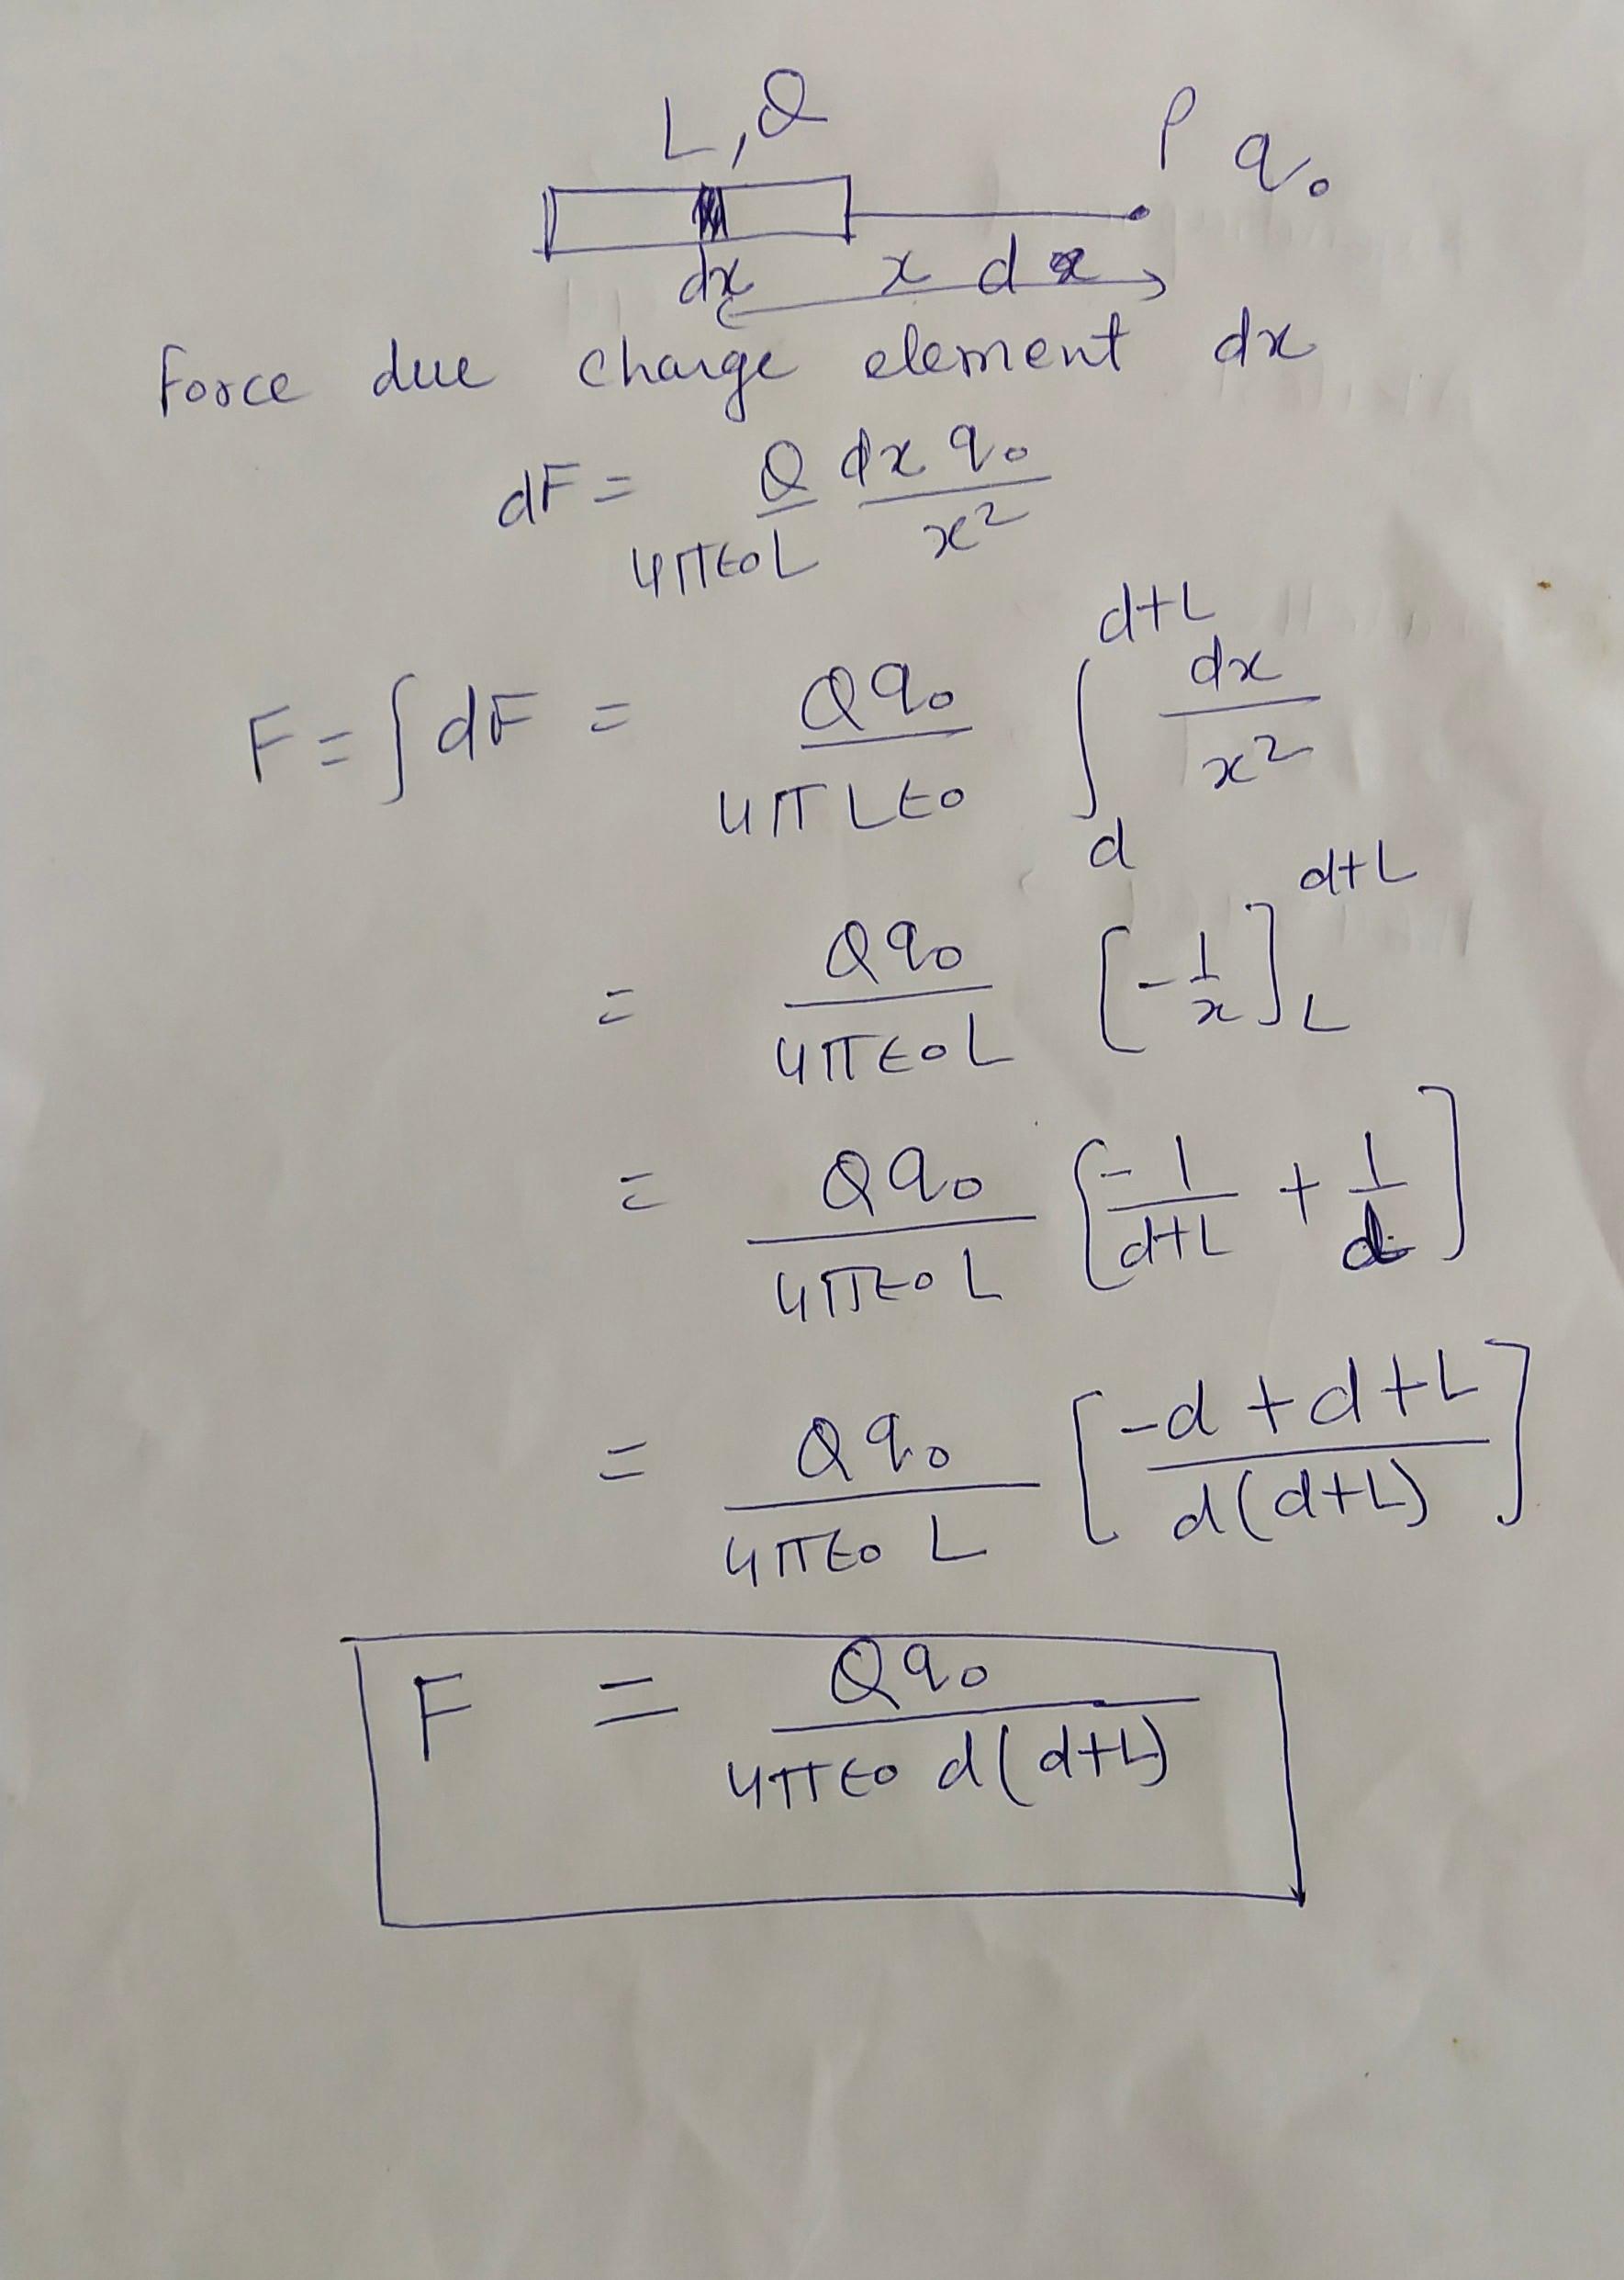 L, Q
P q₀
dx
x d
Force due charge element dx
dF = Q/4π∈₀L dx q₀/x²
F = ∫dF = Qq₀/4πL∈₀ ∫_d^{d+L} dx/x²
= Qq₀/4π∈₀L [-1/x]_L^{d+L}
= Qq₀/4π∈₀L [-1/d+L + 1/d]
= Qq₀/4π∈₀L [-d+d+L/d(d+L)]
F = Qq₀/4π∈₀d(d+L)